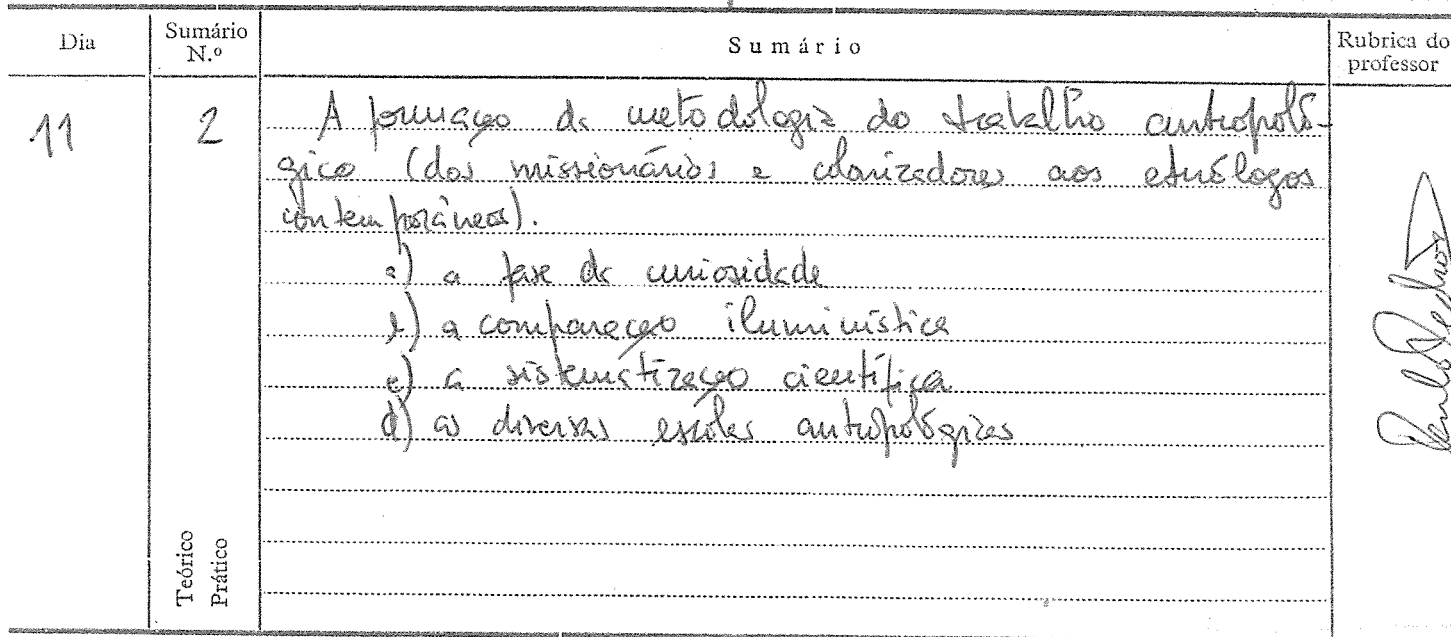 Dia
Sumário N.º
Sumário
Rubrica do professor
11
2
A formação da metodologia do trabalho antropoló-
gico (dos missionários e colonizadores aos etnólogos
contemporâneos).
a) a fase da curiosidade
b) a comparação iluminística
c) a sistematização científica
d) as diversas escolas antropológicas
Teórico
Prático